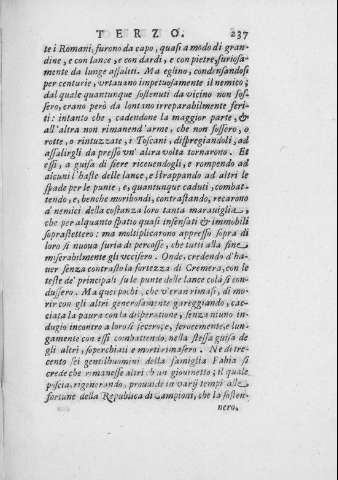 TERZO. 237
te i Romani, furono da capo, quasi a modo di gran-
dine, e con lance, e con dardi, e con pietre, furiosa-
mente da lunge assaliti. Ma eglino, condensandosi
per centurie, urtauano impetuosamente il nemico;
dal quale quantunque sostenuti da vicino non fos-
sero, erano però da lontano irreparabilmente feri-
ti: intanto che, cadendone la maggior parte, &
all'altra non rimanend'arme, che non fossero, o
rotte, o rintuzzate, i Toscani, dispregiandoli, ad
assalirgli da presso vn'altra volta tornarono. Et
essi, a guisa di fiere riceuendogli, e rompendo ad
alcuni l'haste delle lance, e strappando ad altri le
spade per le punte, e, quantunque caduti, combat-
tendo, e, benche moribondi, contrastando, recarono
a' nemici della costanza loro tanta marauiglia,
che per alquanto spatio quasi insensati & immobili
soprastettero: ma moltiplicarono appresso sopra di
loro sì nuoua furia di percosse, che tutti alla fine
miserabilmente gli vccisero. Onde, credendo d'ha-
uer senza contrasto la fortezza di Cremera, con le
teste de' principali su le punte delle lance colà si con-
dussero. Ma que' pochi, che v'eran rimasi, di mo-
rir con gli altri generosamente gareggiando, cac-
ciata la paura con la disperatione, senza niuno in-
dugio incontro a loro si fecero; e, ferocemente, e lun-
gamente con essi combattendo, nella stessa guisa de
gli altri, soperchiati e morti rimasero. Ne di tre-
cento sei gentilhuomini della famiglia Fabia si
crede che rimanesse altri ch'un giouinetto; il quale
poscia, rigenerando, prouuide in varij tempi alle
fortune della Republica di Campioni, che la sosten-
nero.